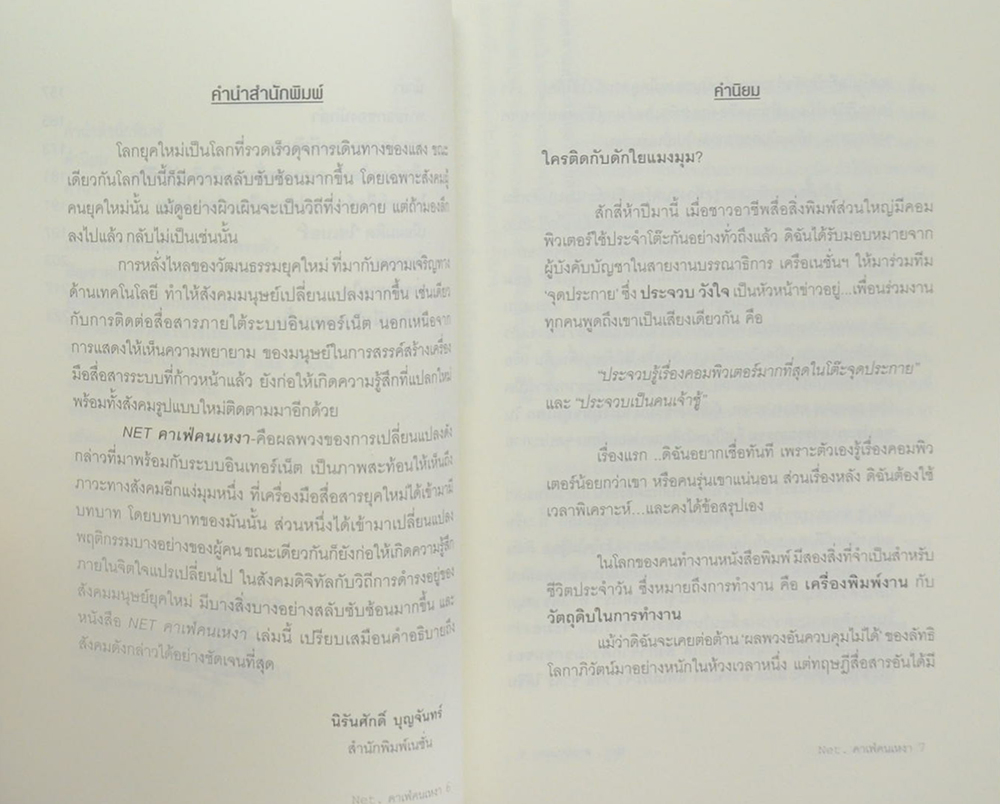 คำนำสำนักพิมพ์
โลกยุคใหม่เป็นโลกที่รวดเร็วดุจการเดินทางของแสง ขณะ
เดียวกันโลกใบนี้ก็มีความสลับซับซ้อนมากขึ้น โดยเฉพาะสังคมผู้
คนยุคใหม่นั้น แม้ดูอย่างผิวเผินจะเป็นวิถีที่ง่ายดาย แต่ถ้ามองลึก
ลงไปแล้ว กลับไม่เป็นเช่นนั้น
การหลั่งไหลของวัฒนธรรมยุคใหม่ ที่มากับความเจริญทาง
ด้านเทคโนโลยี ทำให้สังคมมนุษย์เปลี่ยนแปลงมากขึ้น เช่นเดียว
กับการติดต่อสื่อสารภายใต้ระบบอินเทอร์เน็ต นอกเหนือจาก
การแสดงให้เห็นความพยายาม ของมนุษย์ในการสรรค์สร้างเครื่อง
มือสื่อสารระบบที่ก้าวหน้าแล้ว ยังก่อให้เกิดความรู้สึกที่แปลกใหม่
พร้อมทั้งสังคมรูปแบบใหม่ติดตามมาอีกด้วย
NET คาเฟ่คนเหงา-คือผลพวงของการเปลี่ยนแปลงดัง
กล่าวที่มาพร้อมกับระบบอินเทอร์เน็ต เป็นภาพสะท้อนให้เห็นถึง
ภาวะทางสังคมอีกแง่มุมหนึ่ง ที่เครื่องมือสื่อสารยุคใหม่ได้เข้ามามี
บทบาท โดยบทบาทของมันนั้น ส่วนหนึ่งได้เข้ามาเปลี่ยนแปลง
พฤติกรรมบางอย่างของผู้คน ขณะเดียวกันก็ยังก่อให้เกิดความรู้สึก
ภายในจิตใจแปรเปลี่ยนไป ในสังคมดิจิทัลกับวิถีการดำรงอยู่ของ
สังคมมนุษย์ยุคใหม่ มีบางสิ่งบางอย่างสลับซับซ้อนมากขึ้น และ
หนังสือ NET คาเฟ่คนเหงา เล่มนี้ เปรียบเสมือนคำอธิบายถึง
สังคมดังกล่าวได้อย่างชัดเจนที่สุด
นิรันศักดิ์ บุญจันทร์
สำนักพิมพ์เนชั่น
Net. คาเฟ่คนเหงา 6
คำนิยม
ใครติดกับดักใยแมงมุม?
สักสี่ห้าปีมานี้ เมื่อชาวอาชีพสื่อสิ่งพิมพ์ส่วนใหญ่มีคอม
พิวเตอร์ใช้ประจำโต๊ะกันอย่างทั่วถึงแล้ว ดิฉันได้รับมอบหมายจาก
ผู้บังคับบัญชาในสายงานบรรณาธิการ เครือเนชั่นฯ ให้มาร่วมทีม
‘จุดประกาย’ ซึ่ง ประจวบ วังใจ เป็นหัวหน้าข่าวอยู่...เพื่อนร่วมงาน
ทุกคนพูดถึงเขาเป็นเสียงเดียวกัน คือ
“ประจวบรู้เรื่องคอมพิวเตอร์มากที่สุดในโต๊ะจุดประกาย”
และ “ประจวบเป็นคนเจ้าชู้”
เรื่องแรก ..ดิฉันอยากเชื่อทันที เพราะตัวเองรู้เรื่องคอมพิว
เตอร์น้อยกว่าเขา หรือคนรุ่นเขาแน่นอน ส่วนเรื่องหลัง ดิฉันต้องใช้
เวลาพิเคราะห์...และคงได้ข้อสรุปเอง
ในโลกของคนทำงานหนังสือพิมพ์ มีสองสิ่งที่จำเป็นสำหรับ
ชีวิตประจำวัน ซึ่งหมายถึงการทำงาน คือ เครื่องพิมพ์งาน กับ
วัตถุดิบในการทำงาน
แม้ว่าดิฉันจะเคยต่อต้าน ‘ผลพวงอันควบคุมไม่ได้’ ของลัทธิ
โลกาภิวัตน์มาอย่างหนักในห้วงเวลาหนึ่ง แต่ทฤษฎีสื่อสารอันได้มี
Net. คาเฟ่คนเหงา 7